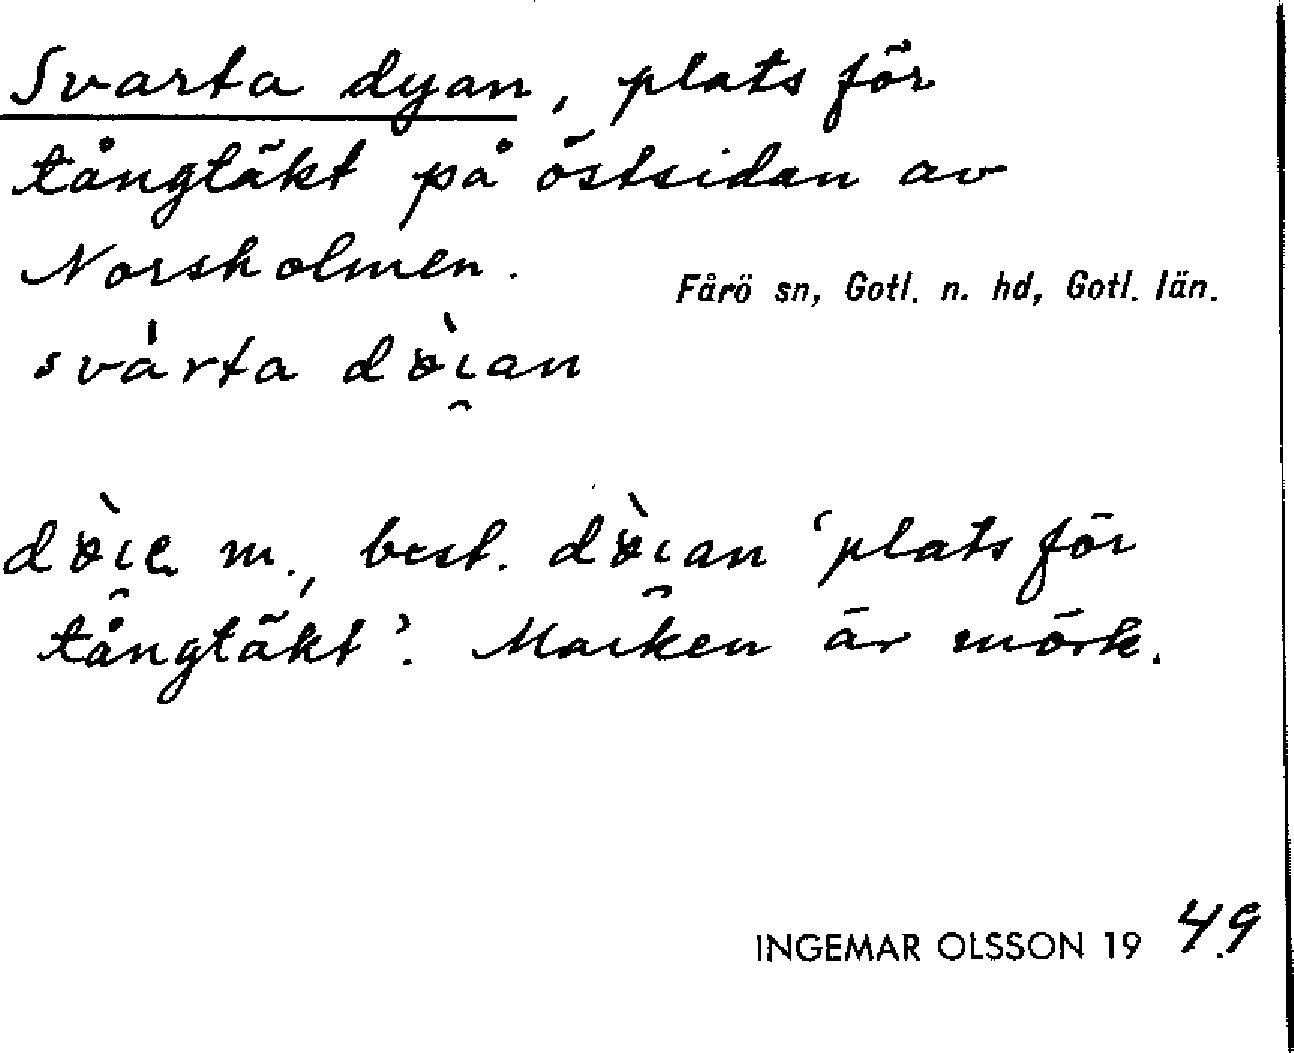 Svarta dyan, plats för
tångtäkt på östsidan av
Norsholmen.
Fårö sn, Gotl. n. hd, Gotl. län.
svárta dɵ̀ɩ̯an
dɵ̀ɩ̯e m., best. dɵ̀ɩ̯an 'plats för
tångtäkt'. Marken är mörk.
INGEMAR OLSSON 1949